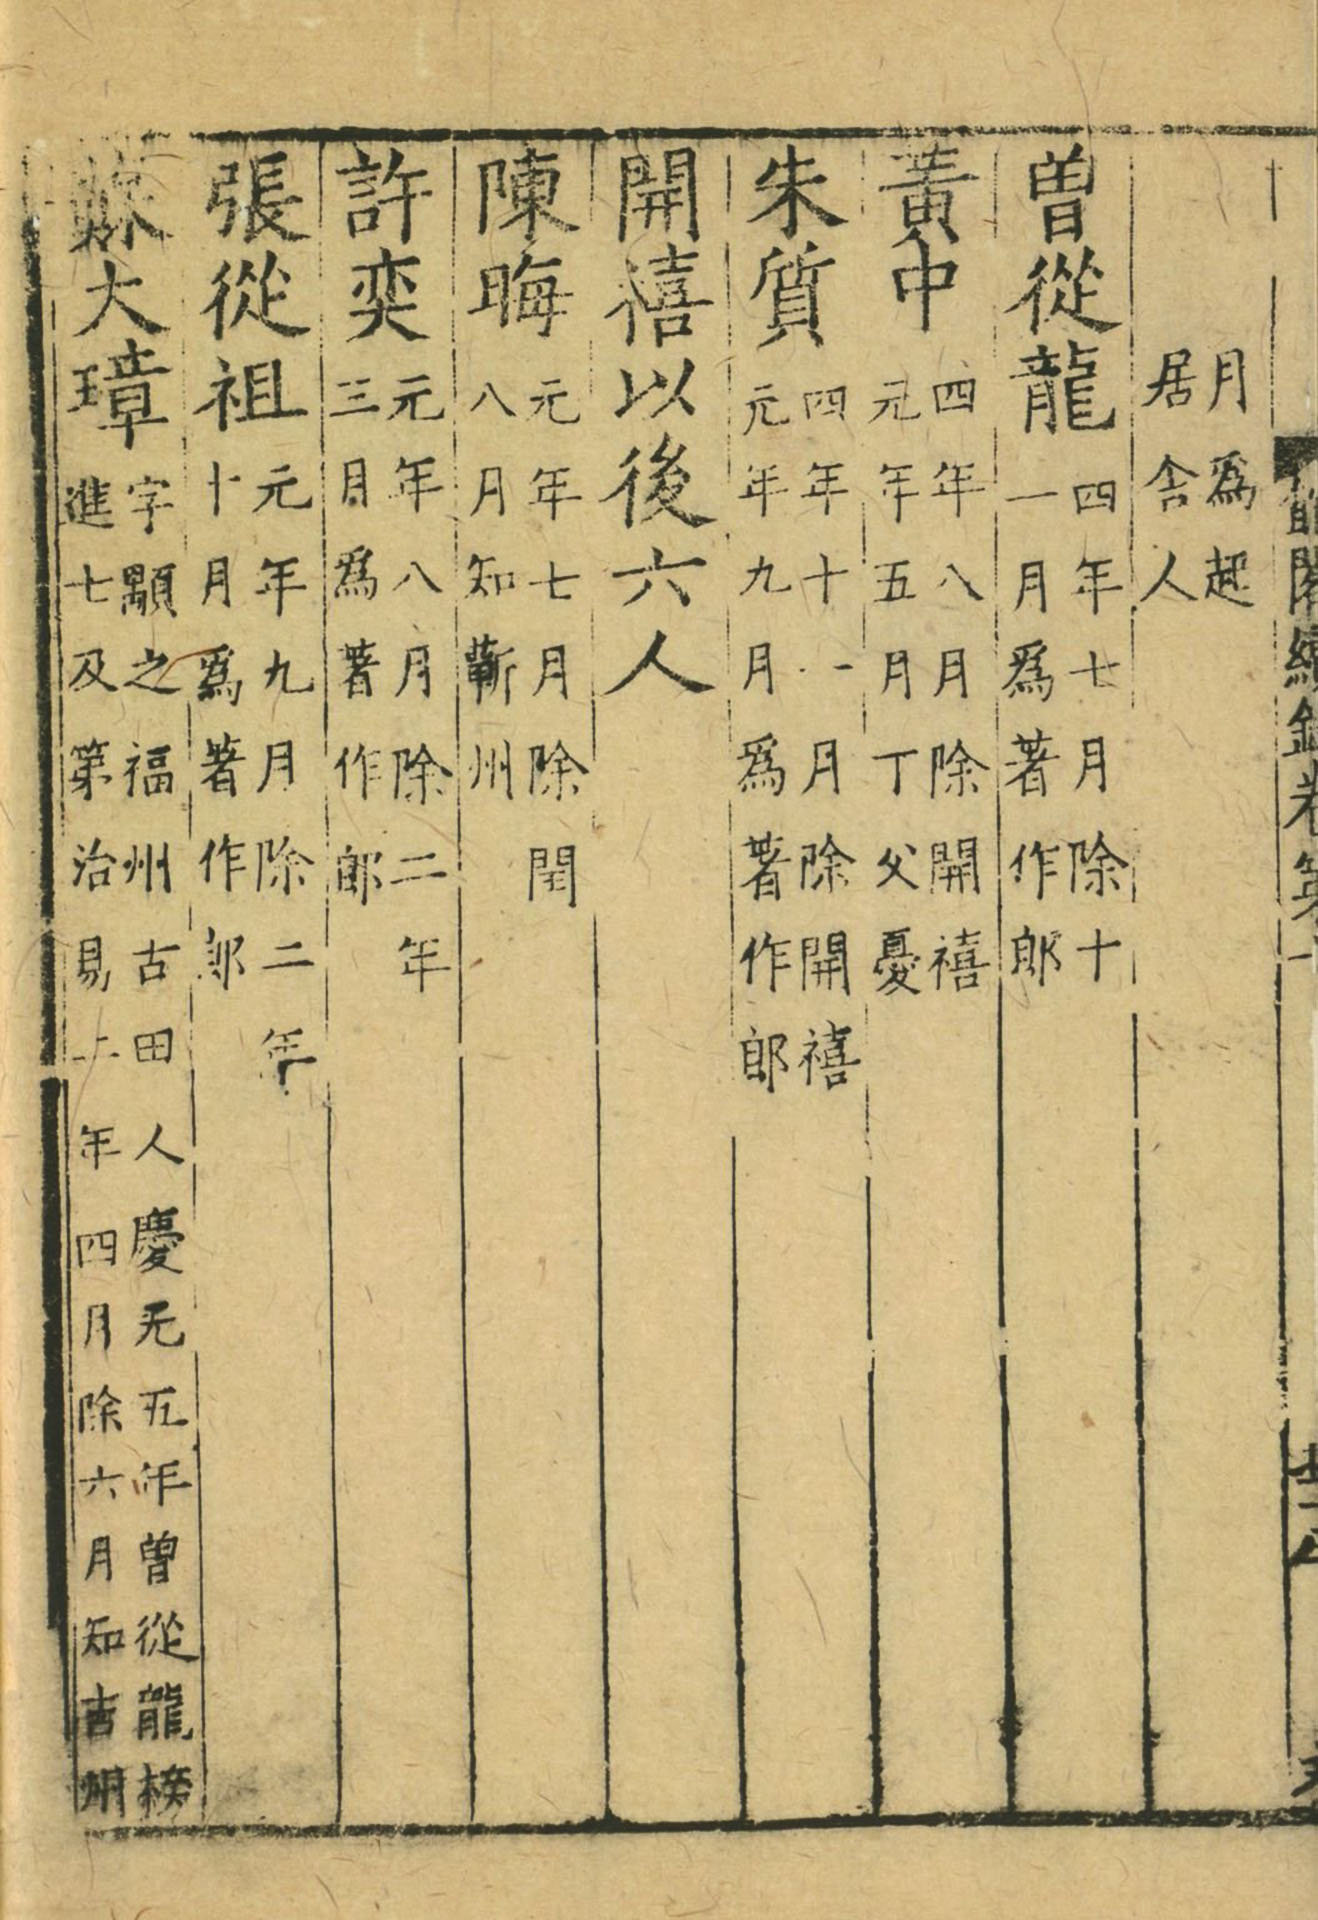 館閣續錄卷第
月爲起
居舍人
曾從龍四年七月除十
一月爲著作郎
黃中四年八月除開禧
元年五月丁父憂
朱質四年十一月除開禧
元年九月爲著作郎
開禧以後六人
陳晦元年七月除閏
八月知蘄州
許奕元年八月除二年
三月爲著作郎
張從祖元年九月除二年
十月爲著作郎
大璋字顒之福州古田人慶元五年曾從龍榜
進士及第治易二年四月除六月知吉州